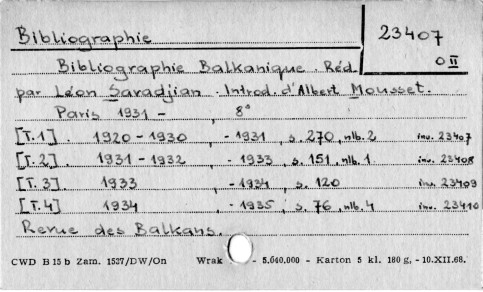 Bibliographie 23407
O II
Bibliographie Balkanique. Réd.
par Léon Savadjian. Introd. d'Albert Mousset.
Paris 1931 - , 8°
[T.1]. 1920-1930 , - 1931 , s. 270, nlb. 2 inv. 23407
[T.2]. 1931-1932 , - 1933 , s. 151, nlb. 1 inv. 23408
[T.3]. 1933 , - 1934 , s. 120 inv. 23409
[T.4] 1934 , - 1935 , s. 76, nlb. 4 inv. 23410
Revue des Balkans.
CWD B 15 b Zam. 1537/DW/On Wrak - 5.640.000 - Karton 5 kl. 180 g. - 10.XII.68.